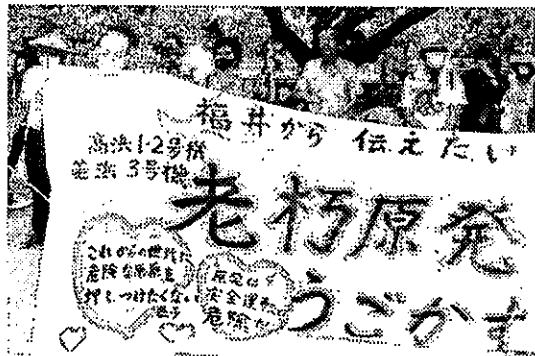 福井から 伝えたい
高浜1・2号機
美浜3号機
老朽原発
うごかす
これからの世代に
危険な原発を
押しつけたくない
原発は
安全
危険だ